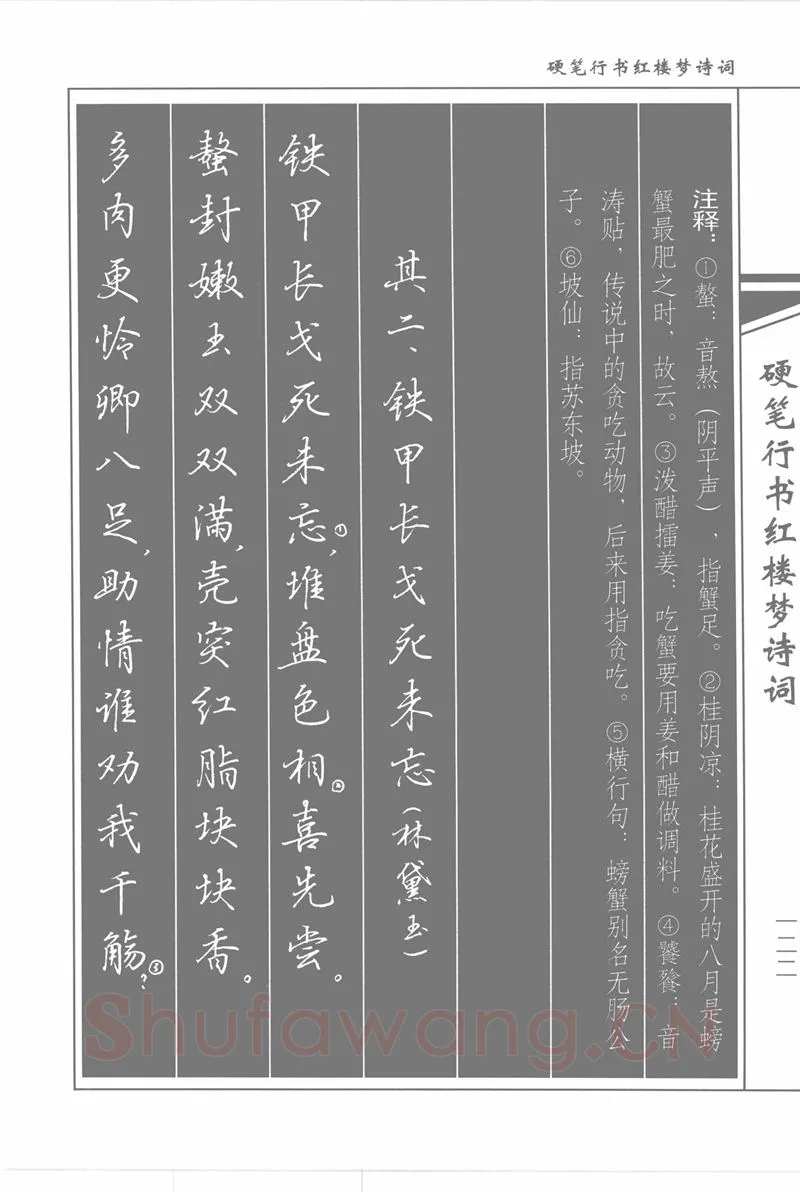 硬笔行书红楼梦诗词
注释：①螯：音熬（阴平声），指蟹足。②桂阴凉：桂花盛开的八月是螃
蟹最肥之时，故云。③泼醋擂姜：吃蟹要用姜和醋做调料。④饕餮：音
涛贴，传说中的贪吃动物，后来用指贪吃。⑤横行句：螃蟹别名无肠公
子。⑥坡仙：指苏东坡。
其二、铁甲长戈死未忘(林黛玉)
铁甲长戈死未忘①，堆盘色相②喜先尝。
螯封嫩玉双双满，壳突红脂块块香。
多肉更怜卿八足，助情谁劝我千觞③？
硬笔行书红楼梦诗词
一二二
Shufawang.CN